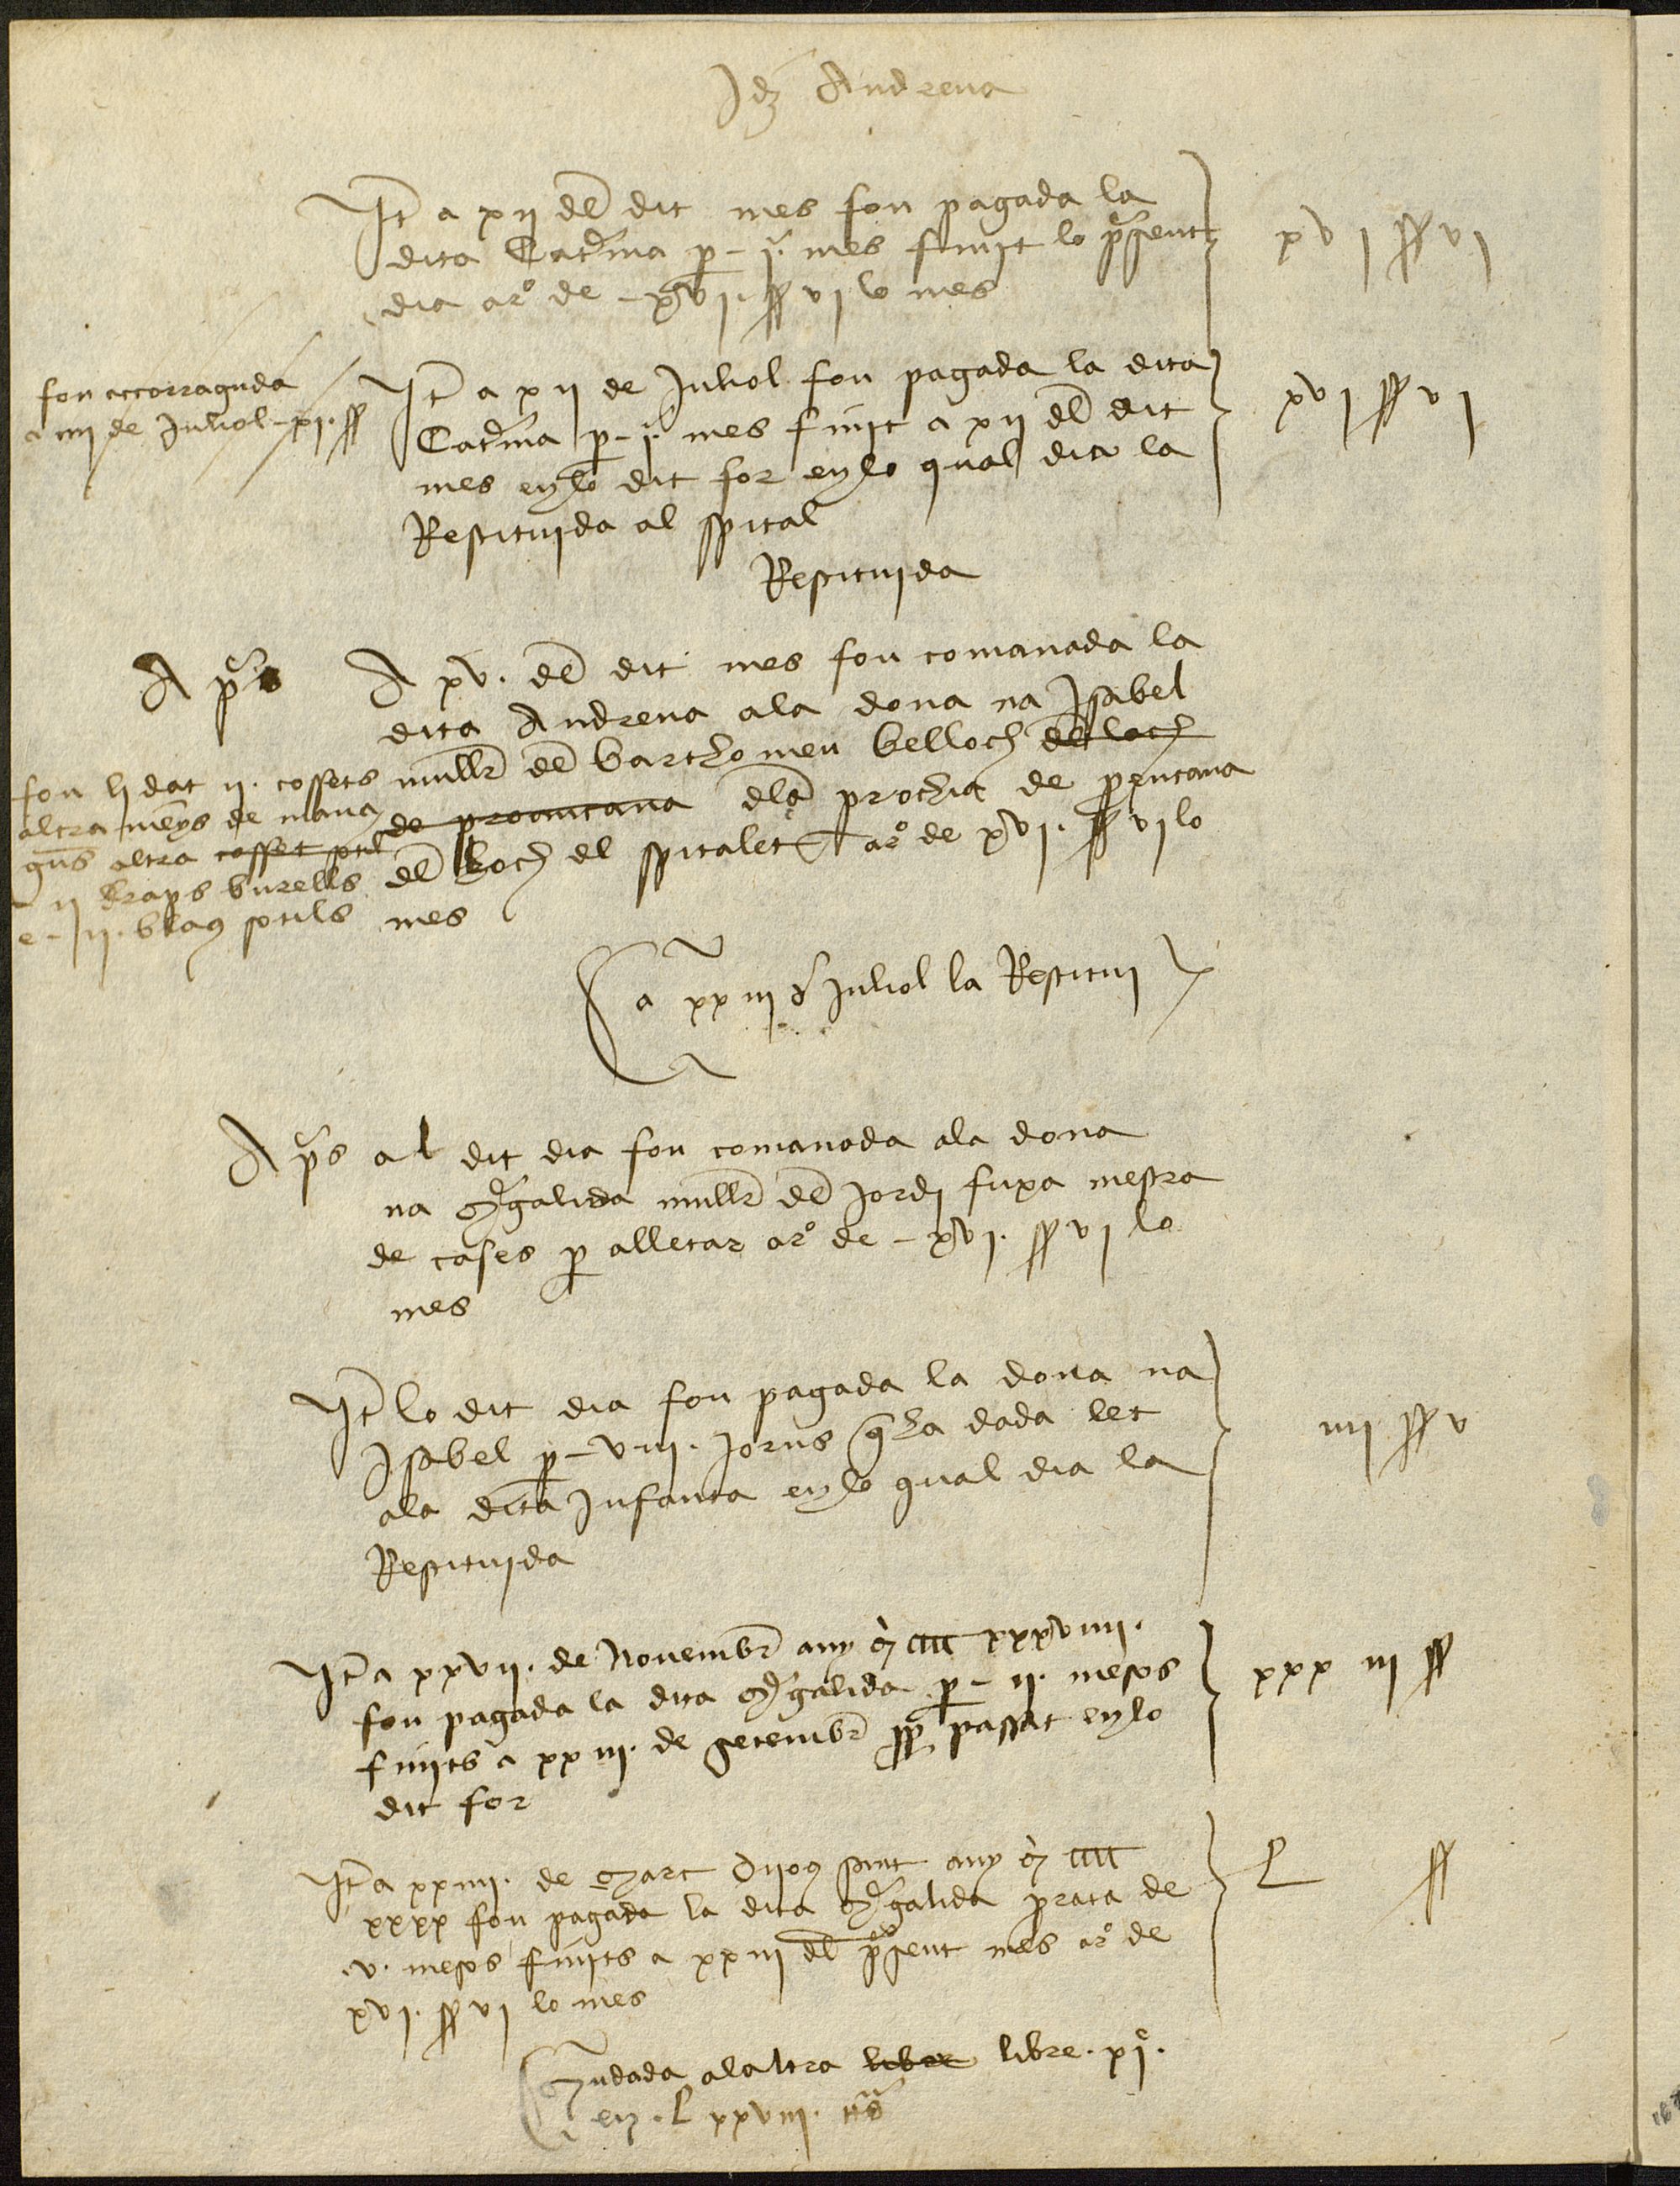 Idz Andreva
It a xii del dit mes fon pagada la
dita Catna p - i. mes finit lo present
dia a ro de - xvi. ss vi lo mes
xvi ss vi
fon accorraguda
a iiii de Juliol - xi. ss
It a xii de Juliol fon pagada la dita
Catna p - i. mes finit a xii del dit
mes en lo dit for en lo qual dia la
Restituida al spital
xvi ss vi
Restituida
A pres
A xv. del dit mes fon comanada la
dita Andreva ala dona na Isabel
mullr del bartholomeu belloch del loch
de provincana dla prochia de provencana
del loch del spitalet a ro de xvi. ss vi lo
mes
fon li dat ii. cossets
altra meys de manegues
altra cosset sotil
ii draps burells
e - ii. blanchs sotils
a xxiii de Juliol la Restitui
A pres al dit dia fon comanada ala dona
na Mgalida mullr del Jordi fuxa mestra
de cases p alletar a ro de - xvi. ss vi lo
mes
It lo dit dia fon pagada la dona na
Isabel p - viii. jorns q ha dada let
ala dita Infanta en lo qual dia la
Restituida
iiii ss v
It a xxvii. de Novembr any M cccc xxxviiii.
fon pagada la dita Mgalida p - ii. mesos
finits a xxiii. de setembr pp passat en lo
dit for
xxx iii ss
It a xxiiii. de Març Dijous sant any M cccc
xxxx fon pagada la dita Mgalida prata de
.v. mesos finits a xxiii del present mes a ro de
xvi. ss vi lo mes
L ss
Mudada alaltra liber libre. xi.
en . L xxviii.